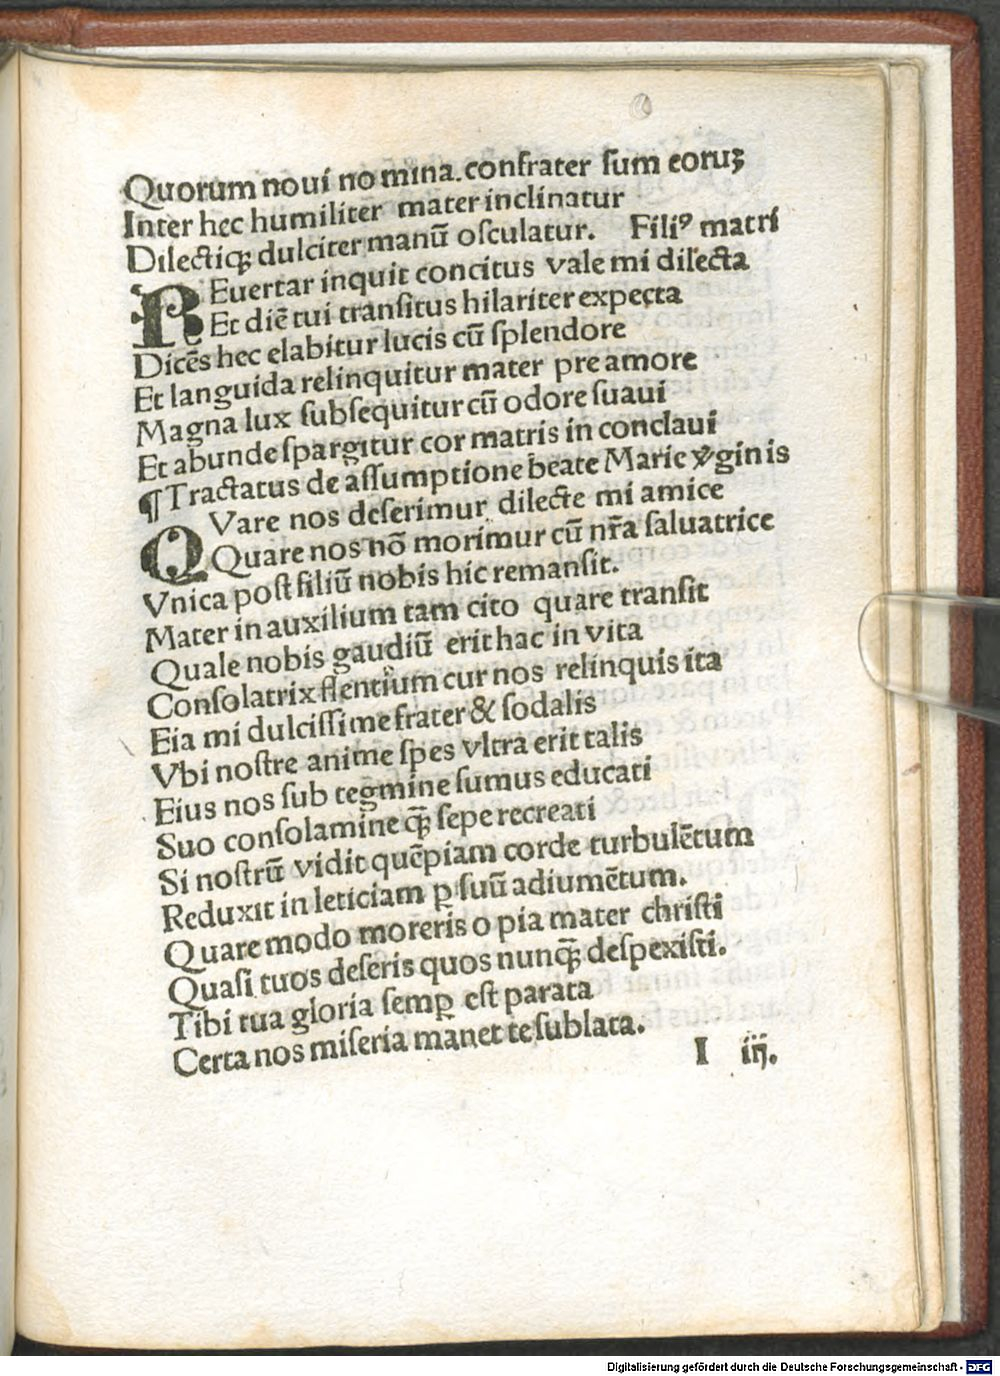 Quorum noui no mina. confrater ſum eoruꝫ
Inter hec humiliter mater inclinatur
Dilectiqꝫ dulciter manū oſculatur. Filiꝰ matri
REuertar inquit concitus vale mi dilecta
Et diē tui tranſitus hilariter expecta
Dicēs hec elabitur lucis cū ſplendore
Et languida relinquitur mater pre amore
Magna lux ſubſequitur cū odore ſuaui
Et abunde ſpargitur cor matris in conclaui
¶Tractatus de aſſumptione beate Marie v̾ginis
QVare nos deſerimur dilecte mi amice
Quare nos nō morimur cū nr̄a ſaluatrice
Vnica poſt filiū nobis hic remanſit.
Mater in auxilium tam cito quare tranſit
Quale nobis gaudiū erit hac in vita
Conſolatrix flentium cur nos relinquis ita
Eia mi dulciſſime frater & ſodalis
Vbi noſtre anime ſpes vltra erit talis
Eius nos ſub tegmine ſumus educati
Suo conſolamine qꝫ̄ ſepe recreati
Si noſtrū vidit quēpiam corde turbulētum
Reduxit in leticiam ꝑ ſuū adiumētum.
Quare modo moreris o pia mater chriſti
Quaſi tuos deſeris quos nunqꝫ̄ deſpexiſti.
Tibi tua gloria ſemꝑ eſt parata
Certa nos miſeria manet te ſublata.
I iij.
Digitalisierung gefördert durch die Deutsche Forschungsgemeinschaft - DFG